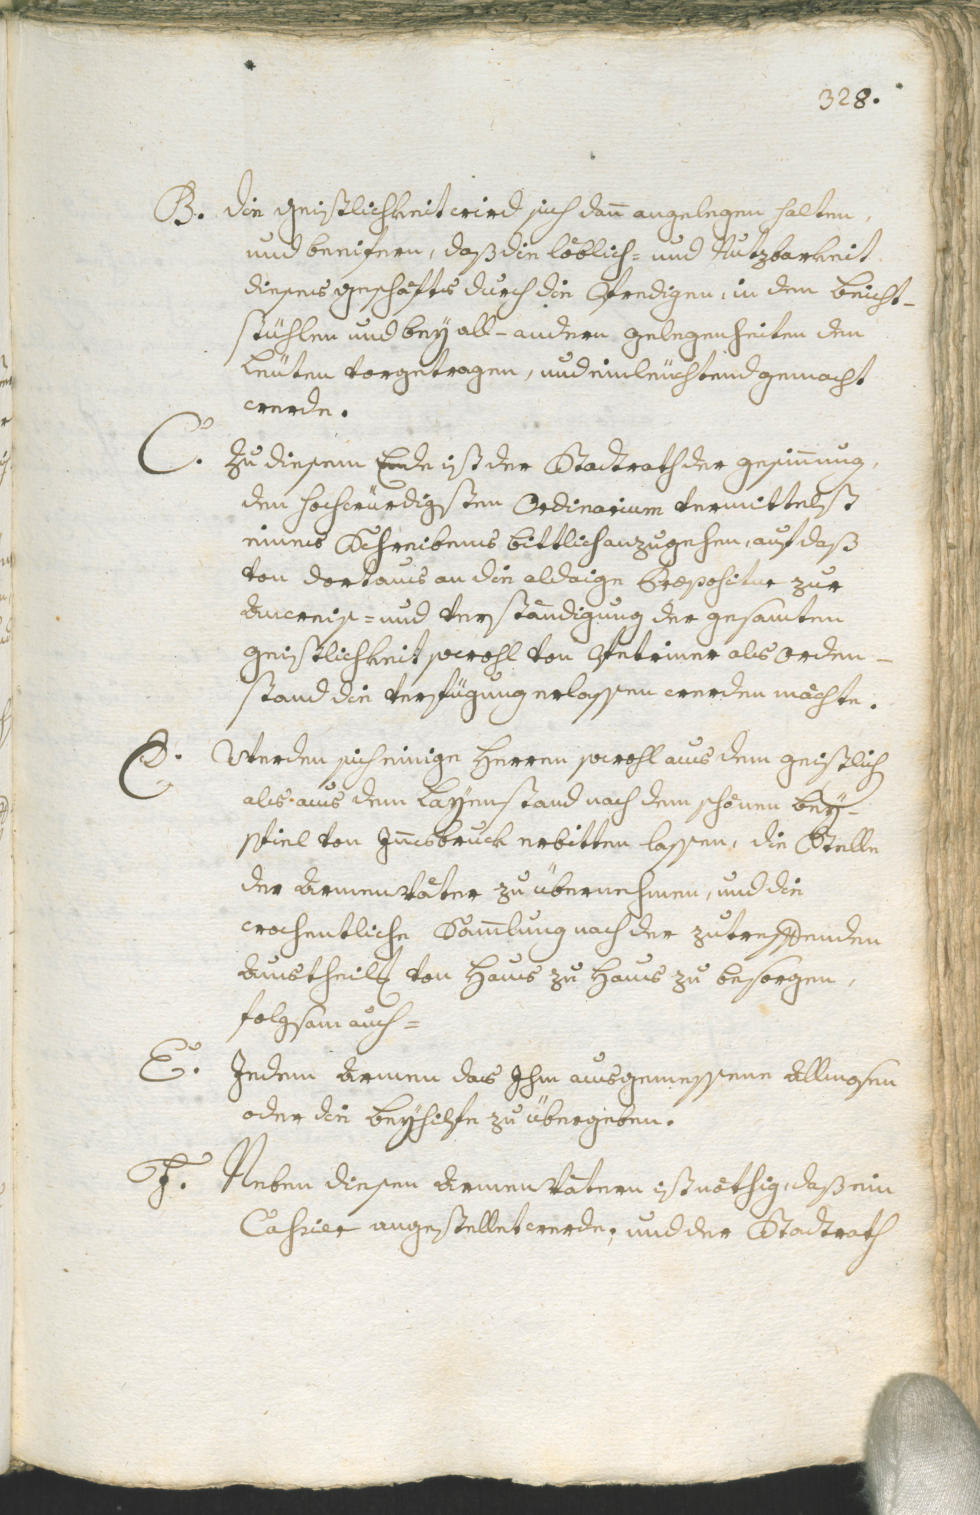 328.
B. die Geistlichkeit wird sich dan̄ angelegen halten,
und beeifern, daß die löblich= und Nutzbarkeit
dieses geschäfts durch die Predigen, in den Beicht-
stühlen und bey all-andern gelegenheiten den
Leüten vorgetragen, und einleüchtend gemacht
werde.
C. Zu diesem Ende ist der Stadtrath der gesinnung,
den hochwürdigsten Ordinarium vermittelst
eines Schreibens bittlich anzugehen, auf daß
von dortaus an die aldaige Præpositur zur
Anweis= und verständigung der gesamten
geistlichkeit sowohl von Petriner als Orden-
stand die verfügung erlassen werden möchte.
D. Werden sich einige Herren sowohl aus dem geistlich
als aus dem Layenstand nach dem schönen Bey-
spiel von Jn̄sbruck erbitten lassen, die Stelle
der Armen Väter zu übernehmen, und die
wochentliche Sam̄lung nach der zutreffenden
Austheilg von Haus zu Haus zu besorgen,
folgsam auch=
E. Jedem Armen das Jhm ausgemessene Allmosen
oder die Beyhilfe zu übergeben.
F. Neben diesen Armen Vätern ist nöthig, daß ein
Cassier angestellet werde; und der Stadtrath